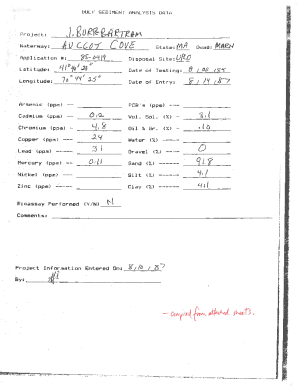 BULK SEDIMENT ANALYSIS DATA
Project: J. BURR BARTRAM
Waterway: AUCOOT COVE State: MA Quad: MARN
Application #: 85-0419 Disposal Site:
Latitude: 41° 40' 20" Date of Testing:
Longitude: 70° 44' 25" Date of Entry: 8, 14, 87
Arsenic (ppm) PCB's (ppm)
Cadmium (ppm) 0.2 Vol. Sol. (%) 3.1
Chromium (ppm) 4.8 Oil & Gr. (%) .10
Copper (ppm) 24 Water (%)
Lead (ppm) 31 Gravel (%) 0
Mercury (ppm) 0.11 Sand (%) 91.8
Nickel (ppm) Silt (%) 4.1
Zinc (ppm) Clay (%) 4.1
Bioassay Performed (Y/N) N
Comments:
Project Information Entered On: 8, 18, 87
By:
- compiled from attached sheets.